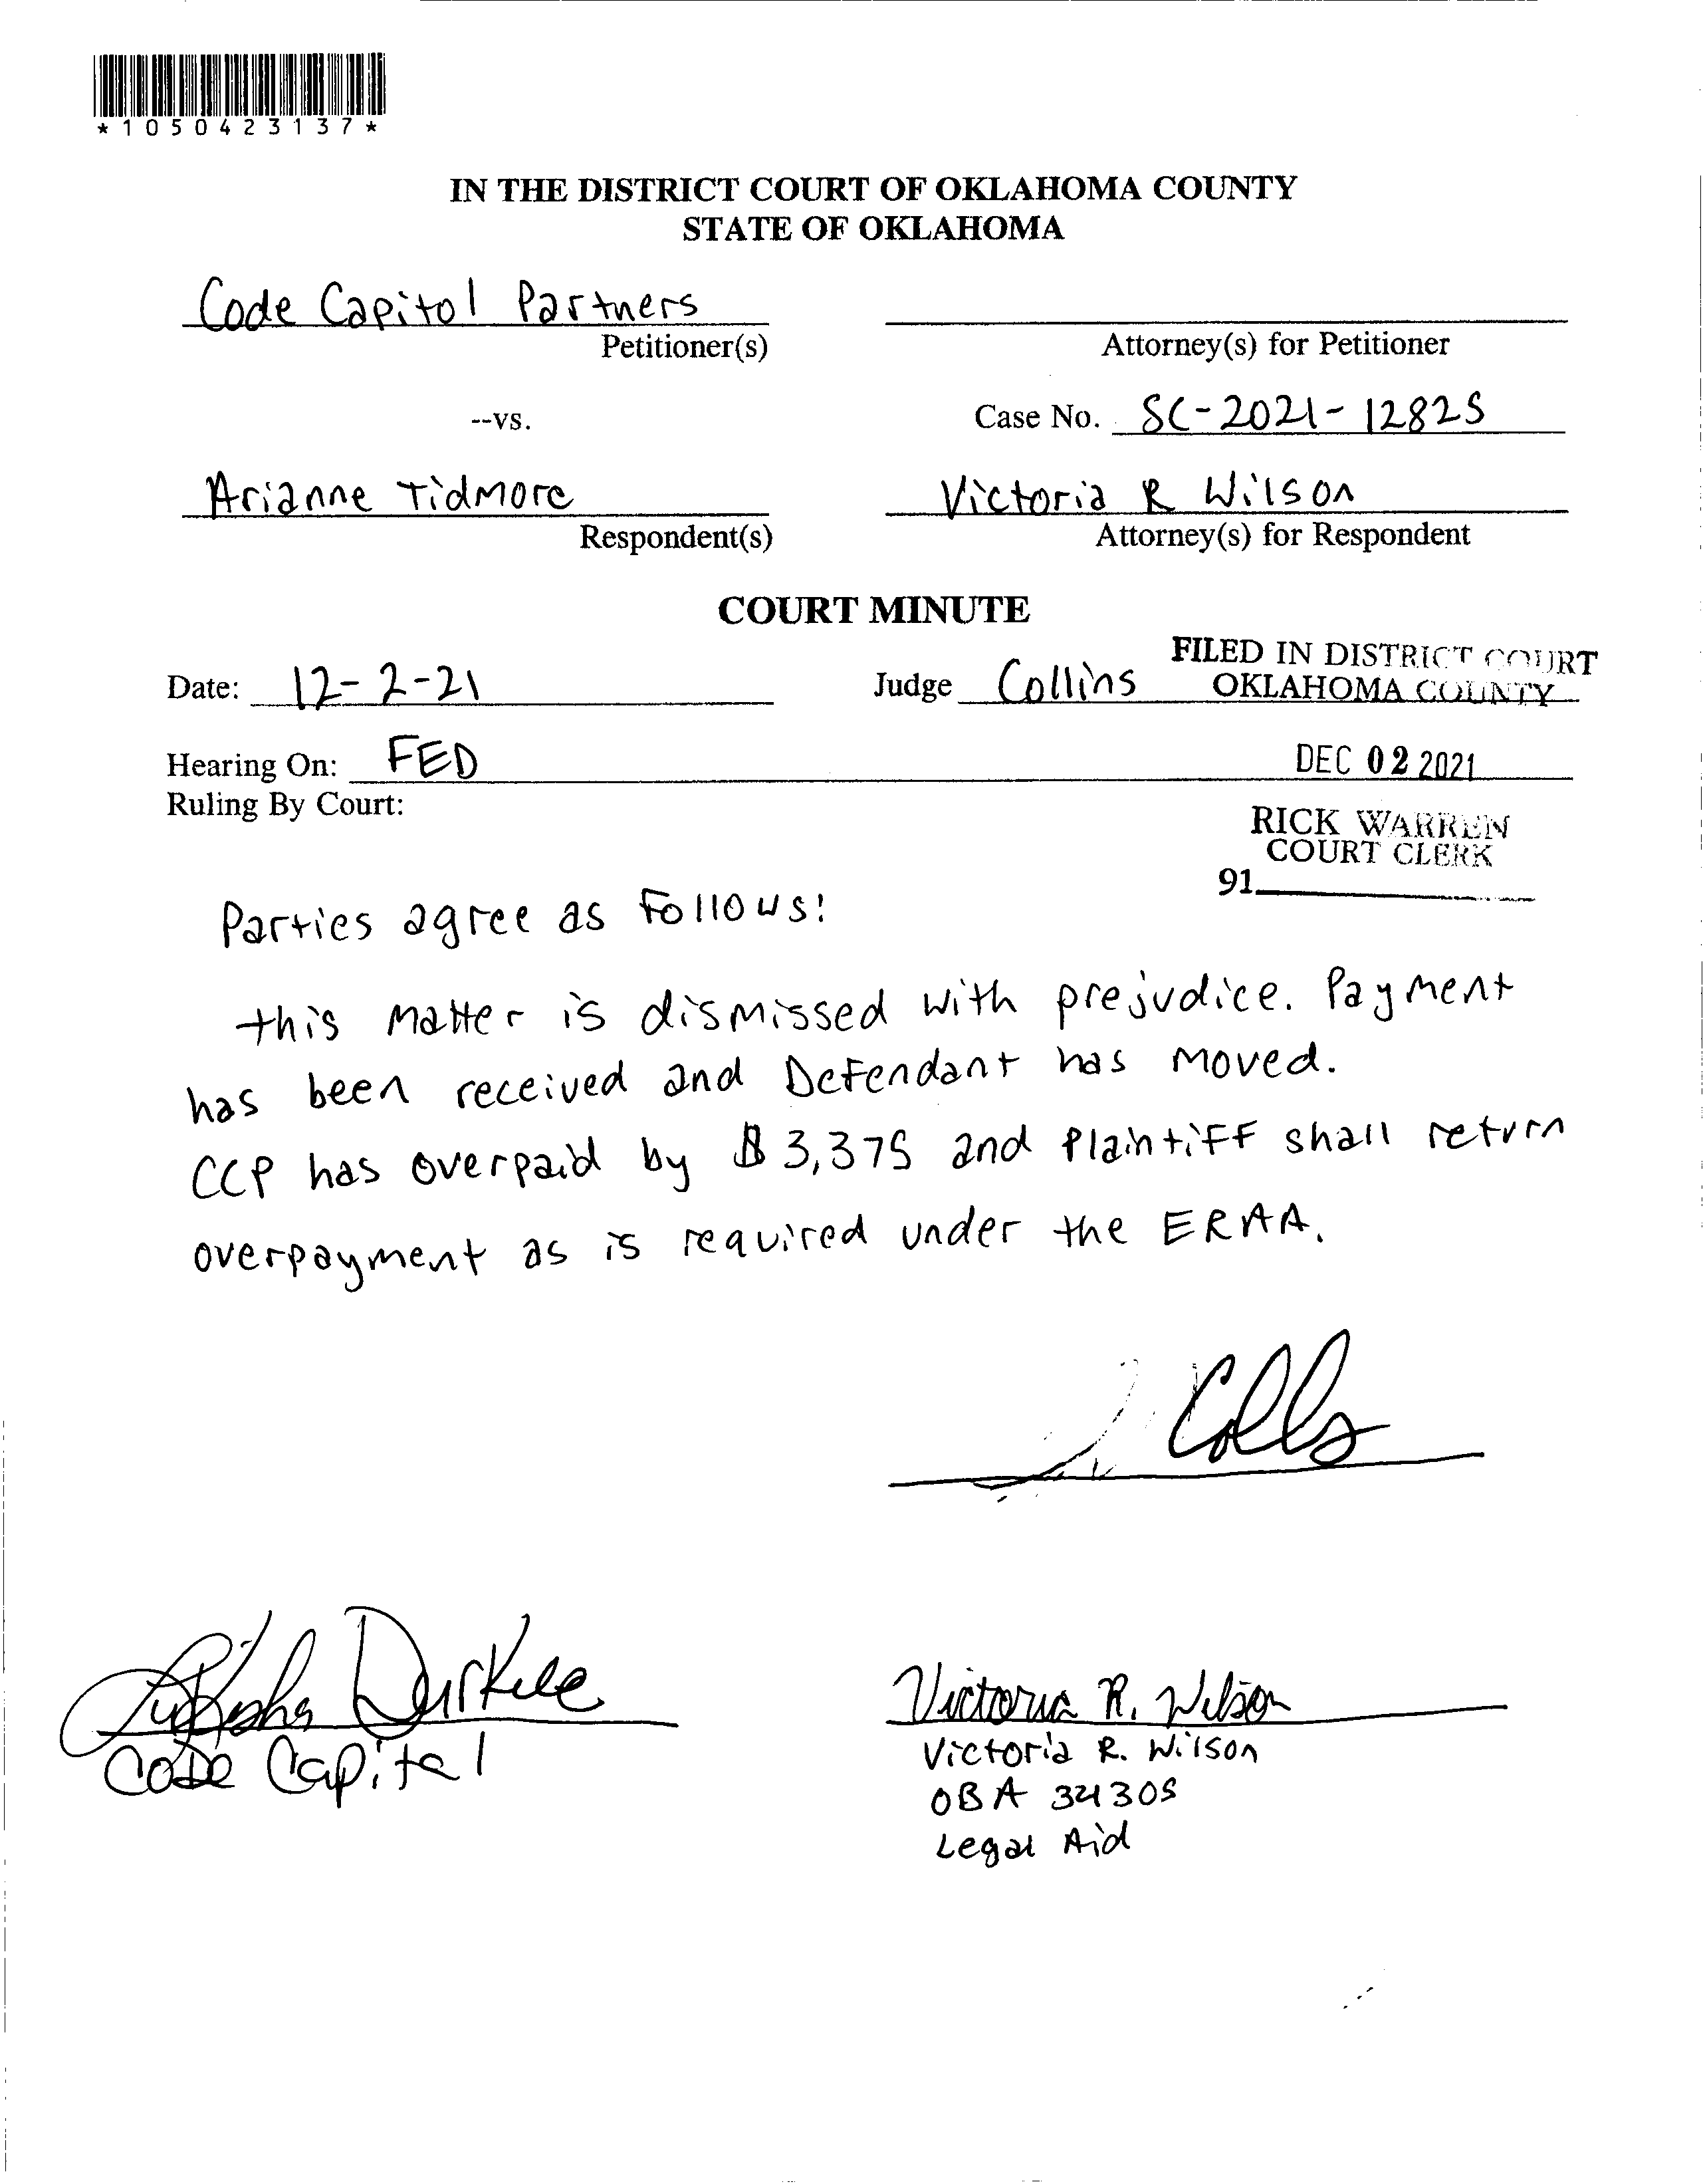 *1050423137*
IN THE DISTRICT COURT OF OKLAHOMA COUNTY
STATE OF OKLAHOMA
Code Capitol Partners
Petitioner(s)
Attorney(s) for Petitioner
--vs.
Case No. SC-2021-12825
Arianne Tidmore
Respondent(s)
Victoria R Wilson
Attorney(s) for Respondent
COURT MINUTE
FILED IN DISTRICT COURT
OKLAHOMA COUNTY
Date: 12-2-21
Judge Collins
Hearing On: FED
DEC 02 2021
Ruling By Court:
RICK WARREN
COURT CLERK
91
Parties agree as follows:
this matter is dismissed with prejudice. Payment
has been received and Defendant has moved.
CCP has overpaid by $3,375 and Plaintiff shall return
overpayment as is required under the ERAA.
Durkee
Code Capital
Victoria R. Wilson
Victoria R. Wilson
OBA 34305
Legal Aid